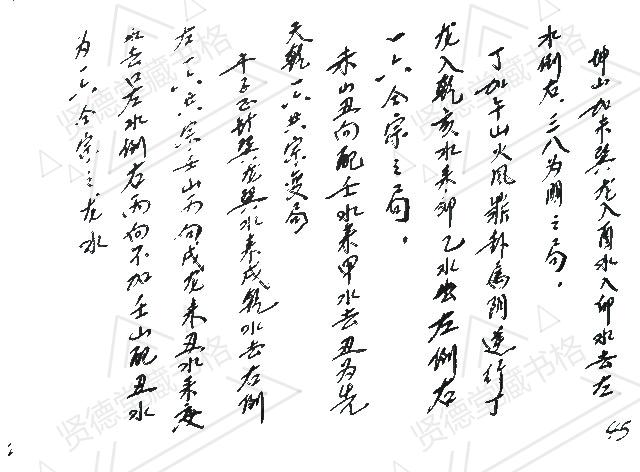 坤山加未巽龙入酉水入卯水去左
水倒右.三八为朋之局.
丁加午山火风鼎卦属阴逆行丁
龙入乾亥水来卯乙水出左倒右
一六合宗之局.
未山丑向配壬水来甲水去丑为先
天乾一六共宗变局
午子正针巽龙巽水来戌乾水去右倒
左一六共宗壬山丙向戌龙来丑水来
水去口左水倒右丙向不加壬山配丑水
为一六合宗之龙水
45
贤德堂藏书格